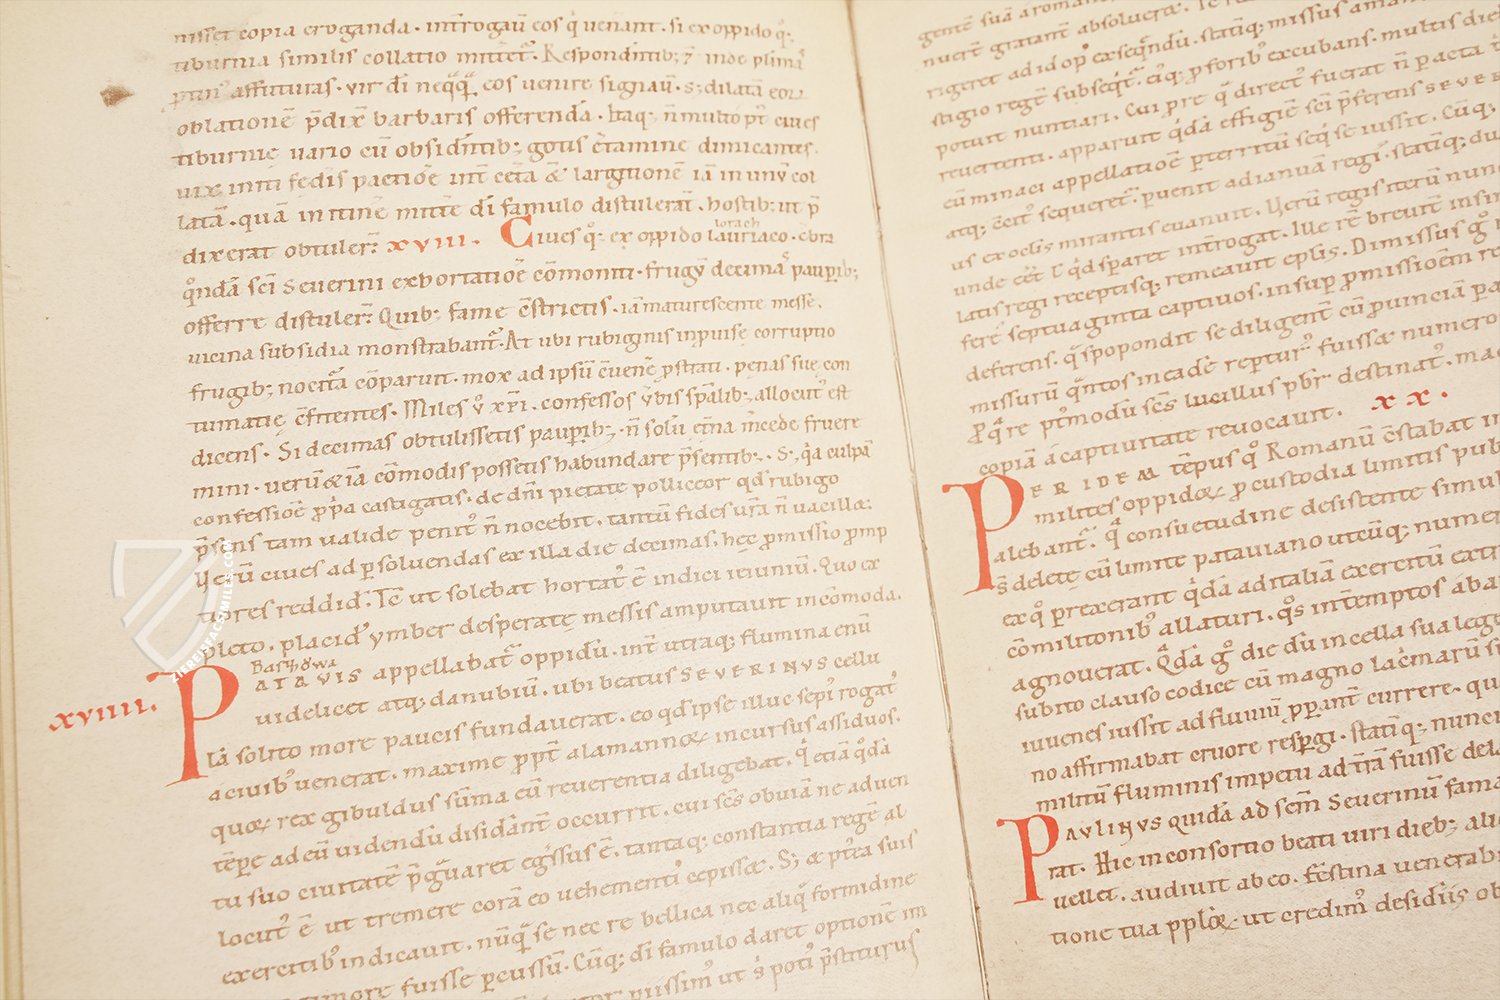 nisset copia eroganda. int̄rogaū eos q̇ venant. si ex oppido q̇.
tiburnia similis collatio mittet̄. Respondintib; ⁊ inde plima
affuturas. vir dī neq̄q̄ eos uenire signaū. S; dilatā eoꝝ
oblationē p̄dix̄ barbaris offerendā. Itaq; n̄ multo pꝰt ciues
tiburnię vario cū obsidētib; gotis c̄tamine dimicantes.
uix initi fędis pactiōe int̄ cet̄a & largitionē iā in unū col
latā. quā in itinē mitt̄e dī famulo distulerāt. hostib; ut p̄
dixerat obtuler̄. xviii. Ciues q̇; ex oppido lauriaco. c̄bra
lorach
q̊ndā sc̄i Severini exhortatiōe cōmoniti. frugū decimas paupib;
offerre distuler̄. Quib; fame c̄strictis. iā maturescente messe.
vicina subsidia monstrabant̄. At ubi rubiginis inpuise corruptio
frugib; nocit̄a cōparuit. mox ad ipsū c̄uenē ꝓstrati. penas suę con
tumatię c̄fitentes. Miles ṽ xp̄i. confessos v̄bis sp̄alib; allocut̉ est
dicens. Si decimas obtulissetis pauꝑib; n̄ solū et̄na m̄cede fruere
mini. verū & iā cōmodis possetis habundare p̄sentib;. S; q̇a culpā
confessiōe ꝓpa castigatis. de dn̄i pietate polliceor qd̄ rubigo
p̄sens tam valide penit̉ n̄ nocebit. tantū fides ur̄a n̄ vacillæt.
Verū ciues ad ꝑsoluendas ex illa die decimas, hęc ꝓmissio ꝓmp
tiores reddid̄. Tc̄ ut solebat hortat̉ ē indici ieiuniū. Quo ex
pleto, placid̉ ymber desperatę messis amputauit incōmoda.
Bassowa
xviiii. PATAVIS appellabat̄ oppidū. int̄ utraq; flumina enū
uidelicet atq; danubiū, ubi beatus SEVERINVS cellu
lā solito more paucis fundauerat. eo qd̄ ipse illuc sepi᷑ rogat̉
a ciuib̉ venerat. maxime ꝓpt̄ alamannoꝝ incursus assiduos.
quoꝝ rex gibuldus sūma eū reuerentia diligebat. q̇ etiā q̊dā
tēpe ad eū uidendū disidānt̄ occurrit. cui sc̄s obuiā ne aduen
tu suo ciuitatē p̄g̊uaret eg̃ssus ē. tantaq; constantia regē al
locut̉ ē ut tremere corā eo uehementi᷑ cepissæ. S; & pt̄ea suis
exercitib̉ indicauit. nūq̄ se nec re bellica nec aliq̄ formidine
more fuisse ꝑcussū. Cūq; dī famulo daret optionē im
ut s̉ poti᷑ p̄stiturus
gentē suā a roma
nuerit gratant̄ absoluere.
rigeret ad id op̉ exseq̄ndū. statiq; missus
stigio regē subseq̄t᷑. eiq; ꝓ forib̉ excubans. multis die
potuit nuntiari. Cui ꝓ re q̄ direct̉ fuerat n̄ ꝑacta
reuertenti. apparuit q̊dā effigiē sc̄i p̄ferens SEVER
cū minaci appellatiōe ꝑterritū seq̇ se iussit. Cūq;
atq; sequeret᷑. ꝑuenit ad ianuā regi᷑. statīq; du
us ex oclis mirantis euanuit. Verū regis iterū nun
unde eēt l̄ q̇d sꝑaret int̄rogat. Ille rē breuit̄ insin
latis regi receptisq; remeauit eplis. Dimissus g̊
fere septuaginta captiuos. insuꝑ ꝓmissiōem re
deferens. q̄ spopondit se diligent̄ cū puinciā pa
missurū q̄ntos in eadē reptur᷑ fuissæ numero
Ꝓ q̄ re pt̄modū sc̄s lucillus pb̄r destinat᷑. ma
copiā a captiuitate reuocauit. xx.
PER IDEM tēpus q̊ Romanū c̄stabat im
milites oppidoꝝ ꝓ custodia limitis pub
alebant᷑. q̄ consuetudine desistente simul
s̄ deletę cū limite patauiano utcūq; numer
ex q̇ ꝑrexerant q̇dā ad italiā exercitū extr
cōmilitonib̉ allaturi. q̊s int̄emptos a ba
agnouerat. Q̊dā g̊ die dū in cella sua lege
subito clauso codice cū magno lac̄marū su
iuuenes iussit ad fluuiū ꝓꝑant̄ currere. que
no affirmabat cruore respergi. Statīq; nunc
militū fluminis impetu ad t̄rā fuisse dela
PAVLINVS quidā ad sc̄m Severinū fama
rat. Hic in consortio beati uiri dieb; aliq
uellet. audiuit ab eo. Festina uenerabi
tione tua ppl̄oꝝ. ut credim̉ desidiis ob
ZIEREISFACSIMILES.COM